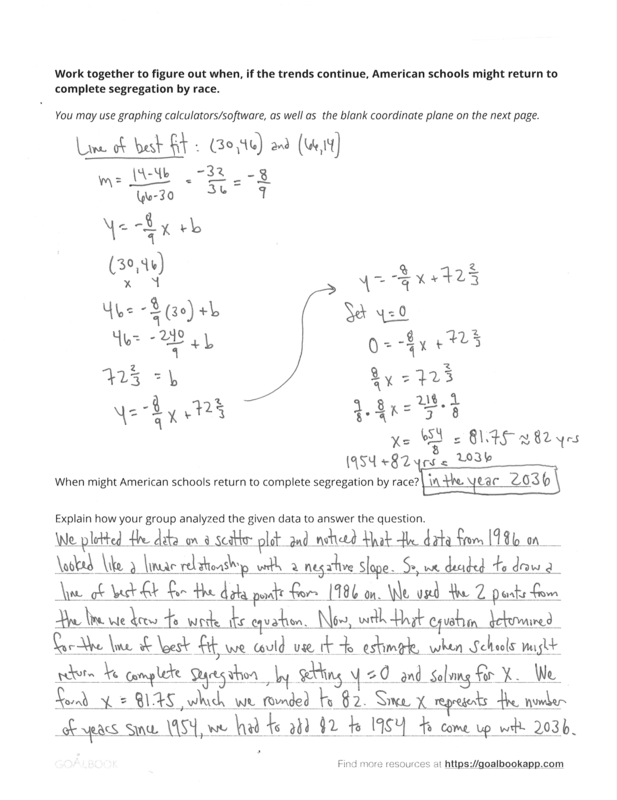 Work together to figure out when, if the trends continue, American schools might return to
complete segregation by race.
You may use graphing calculators/software, as well as the blank coordinate plane on the next page.
Line of best fit : (30,46) and (66,14)
m = 14-46 / 66-30 = -32 / 36 = -8/9
y = -8/9 x + b
(30,46)
x y
46 = -8/9 (30) + b
46 = -240/9 + b
72 2/3 = b
y = -8/9 x + 72 2/3
y = -8/9 x + 72 2/3
Set y=0
0 = -8/9 x + 72 2/3
8/9 x = 72 2/3
9/8 · 8/9 x = 218/3 · 9/8
x = 654/8 = 81.75 ≈ 82 yrs
1954 + 82 yrs = 2036
When might American schools return to complete segregation by race? in the year 2036
Explain how your group analyzed the given data to answer the question.
We plotted the data on a scatter plot and noticed that the data from 1986 on
looked like a linear relationship with a negative slope. So, we decided to draw a
line of best fit for the data points from 1986 on. We used the 2 points from
the line we drew to write its equation. Now, with that equation determined
for the line of best fit, we could use it to estimate when schools might
return to complete segregation, by setting y=0 and solving for x. We
found x = 81.75, which we rounded to 82. Since x represents the number
of years since 1954, we had to add 82 to 1954 to come up with 2036.
GOALBOOK
Find more resources at https://goalbookapp.com